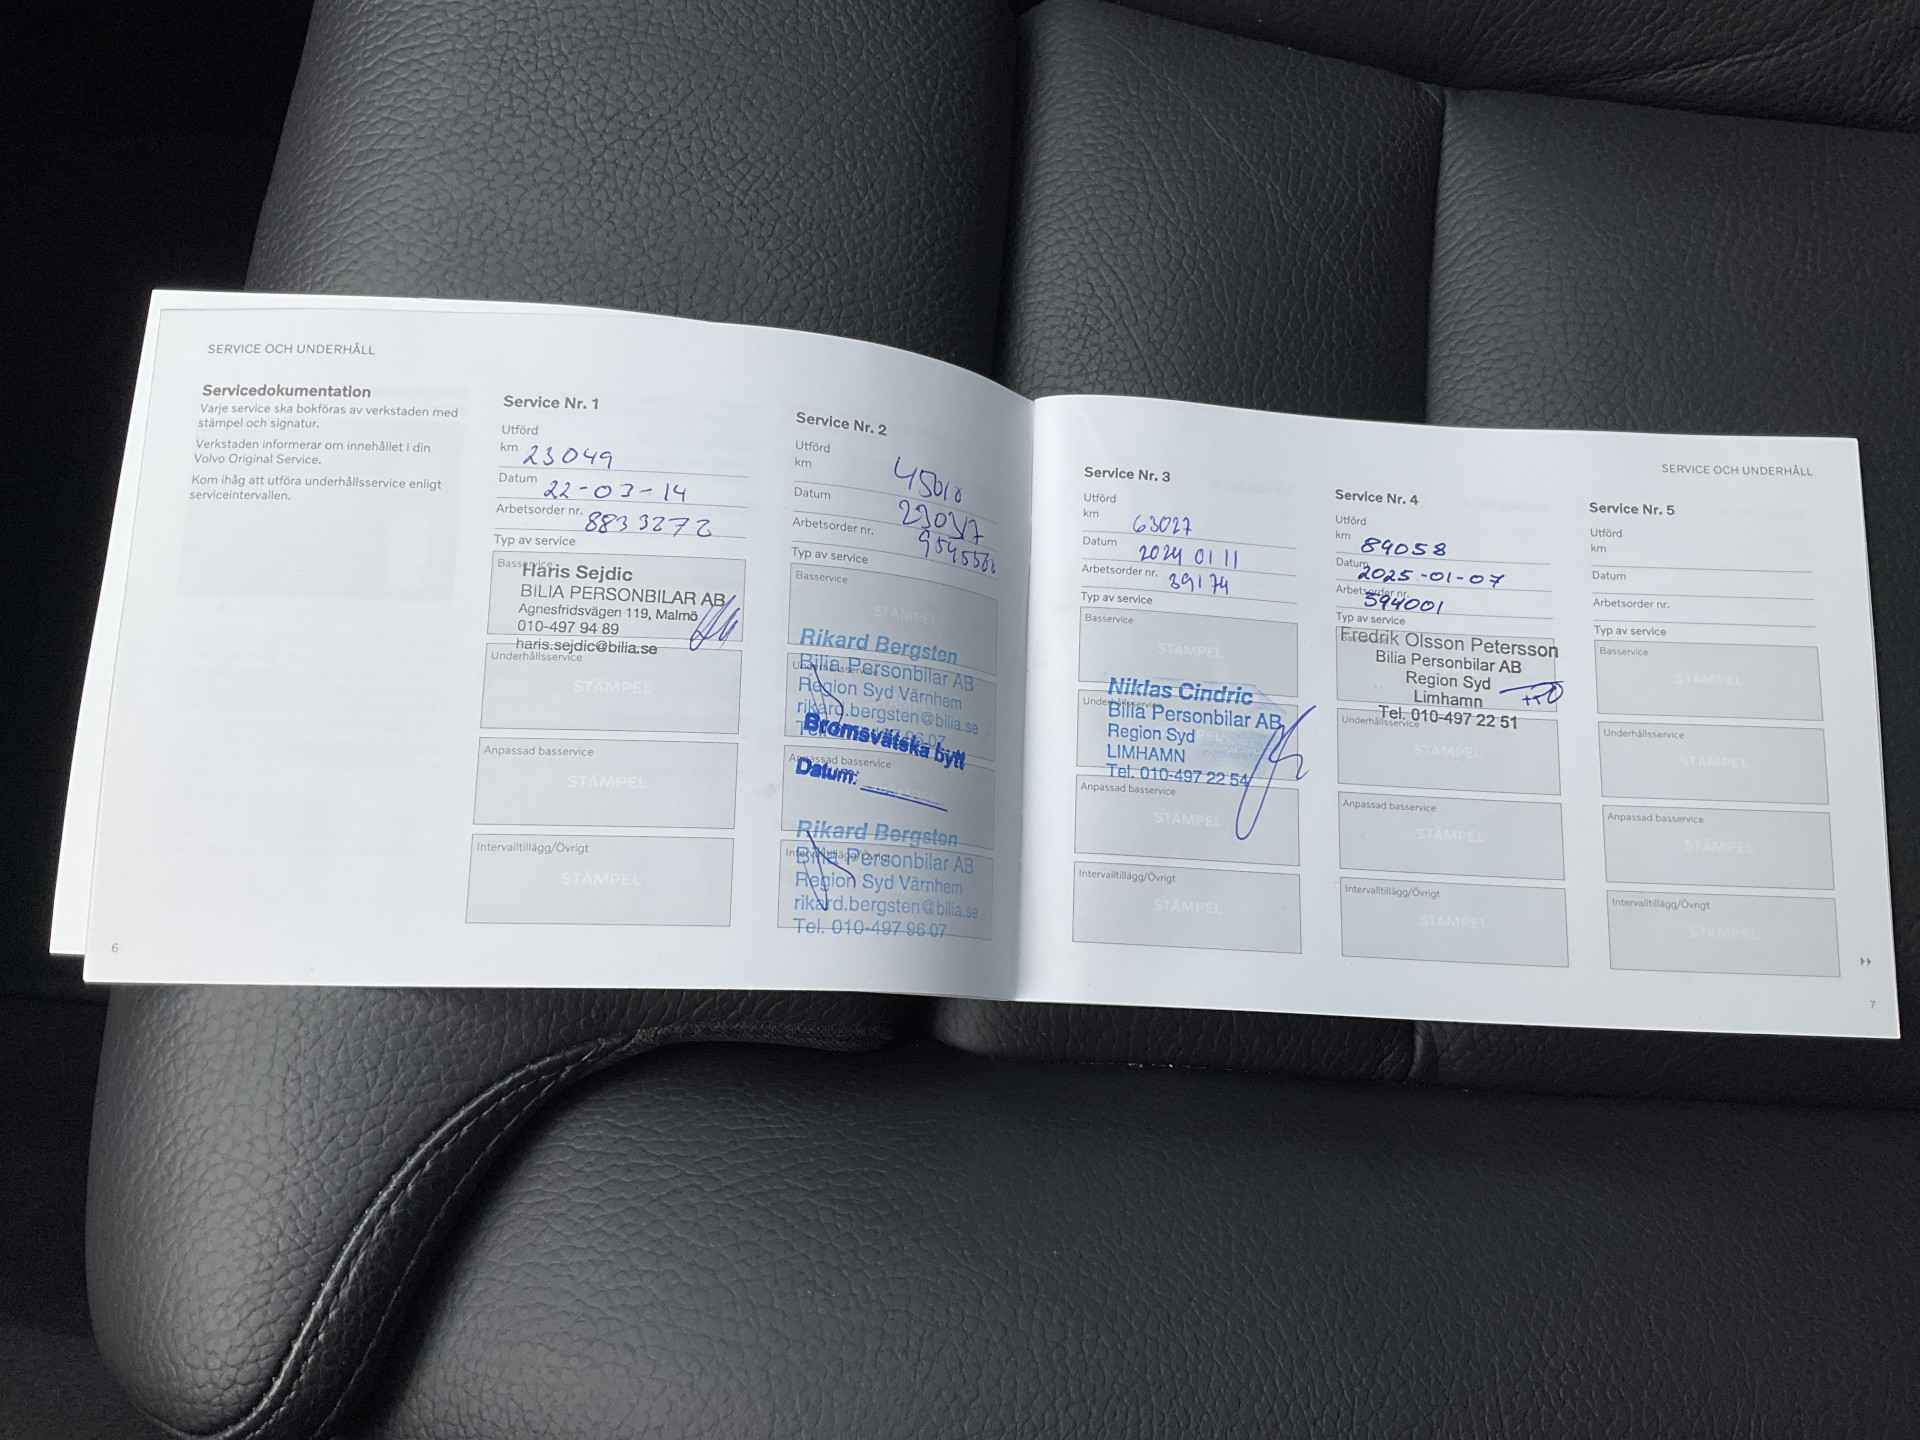 SERVICE OCH UNDERHÅLL
Servicedokumentation
Varje service ska bokföras av verkstaden med
stämpel och signatur.
Verkstaden informerar om innehållet i din
Volvo Original Service.
Kom ihåg att utföra underhållsservice enligt
serviceintervallen.
6
Service Nr. 1
Utförd
km 23049
Datum 22-03-14
Arbetsorder nr. 8833272
Typ av service
Basservice
Haris Sejdic
BILIA PERSONBILAR AB
Agnesfridsvägen 119, Malmö
010-497 94 89
haris.sejdic@bilia.se
Underhållsservice
STÄMPEL
Anpassad basservice
STÄMPEL
Intervalltillägg/Övrigt
STÄMPEL
Service Nr. 2
Utförd
km 45010
Datum
Arbetsorder nr.
Typ av service
Basservice
STÄMPEL
Rikard Bergsten
Underhållsservice
Bilia Personbilar AB
Region Syd Värnhem
rikard.bergsten@bilia.se
Tel. 010-497 96 07
Bromsvätska bytt
Anpassad basservice
Datum:
Rikard Bergsten
Intervalltillägg/Övrigt
Bilia Personbilar AB
Region Syd Värnhem
rikard.bergsten@bilia.se
Tel. 010-497 96 07
SERVICE OCH UNDERHÅLL
Service Nr. 3
Utförd
km 63027
Datum 2024 01 11
Arbetsorder nr. 39174
Typ av service
Basservice
STÄMPEL
Niklas Cindric
Underhållsservice
Bilia Personbilar AB
Region Syd
LIMHAMN
Tel. 010-497 22 54
Anpassad basservice
STÄMPEL
Intervalltillägg/Övrigt
STÄMPEL
Service Nr. 4
Utförd
km 89058
Datum 2025-01-07
Arbetsorder nr. 594001
Typ av service
Fredrik Olsson Petersson
Bilia Personbilar AB
Region Syd
Limhamn
Tel. 010-497 22 51
Underhållsservice
STÄMPEL
Anpassad basservice
STÄMPEL
Intervalltillägg/Övrigt
STÄMPEL
Service Nr. 5
Utförd
km
Datum
Arbetsorder nr.
Typ av service
Basservice
STÄMPEL
Underhållsservice
STÄMPEL
Anpassad basservice
STÄMPEL
Intervalltillägg/Övrigt
STÄMPEL
7